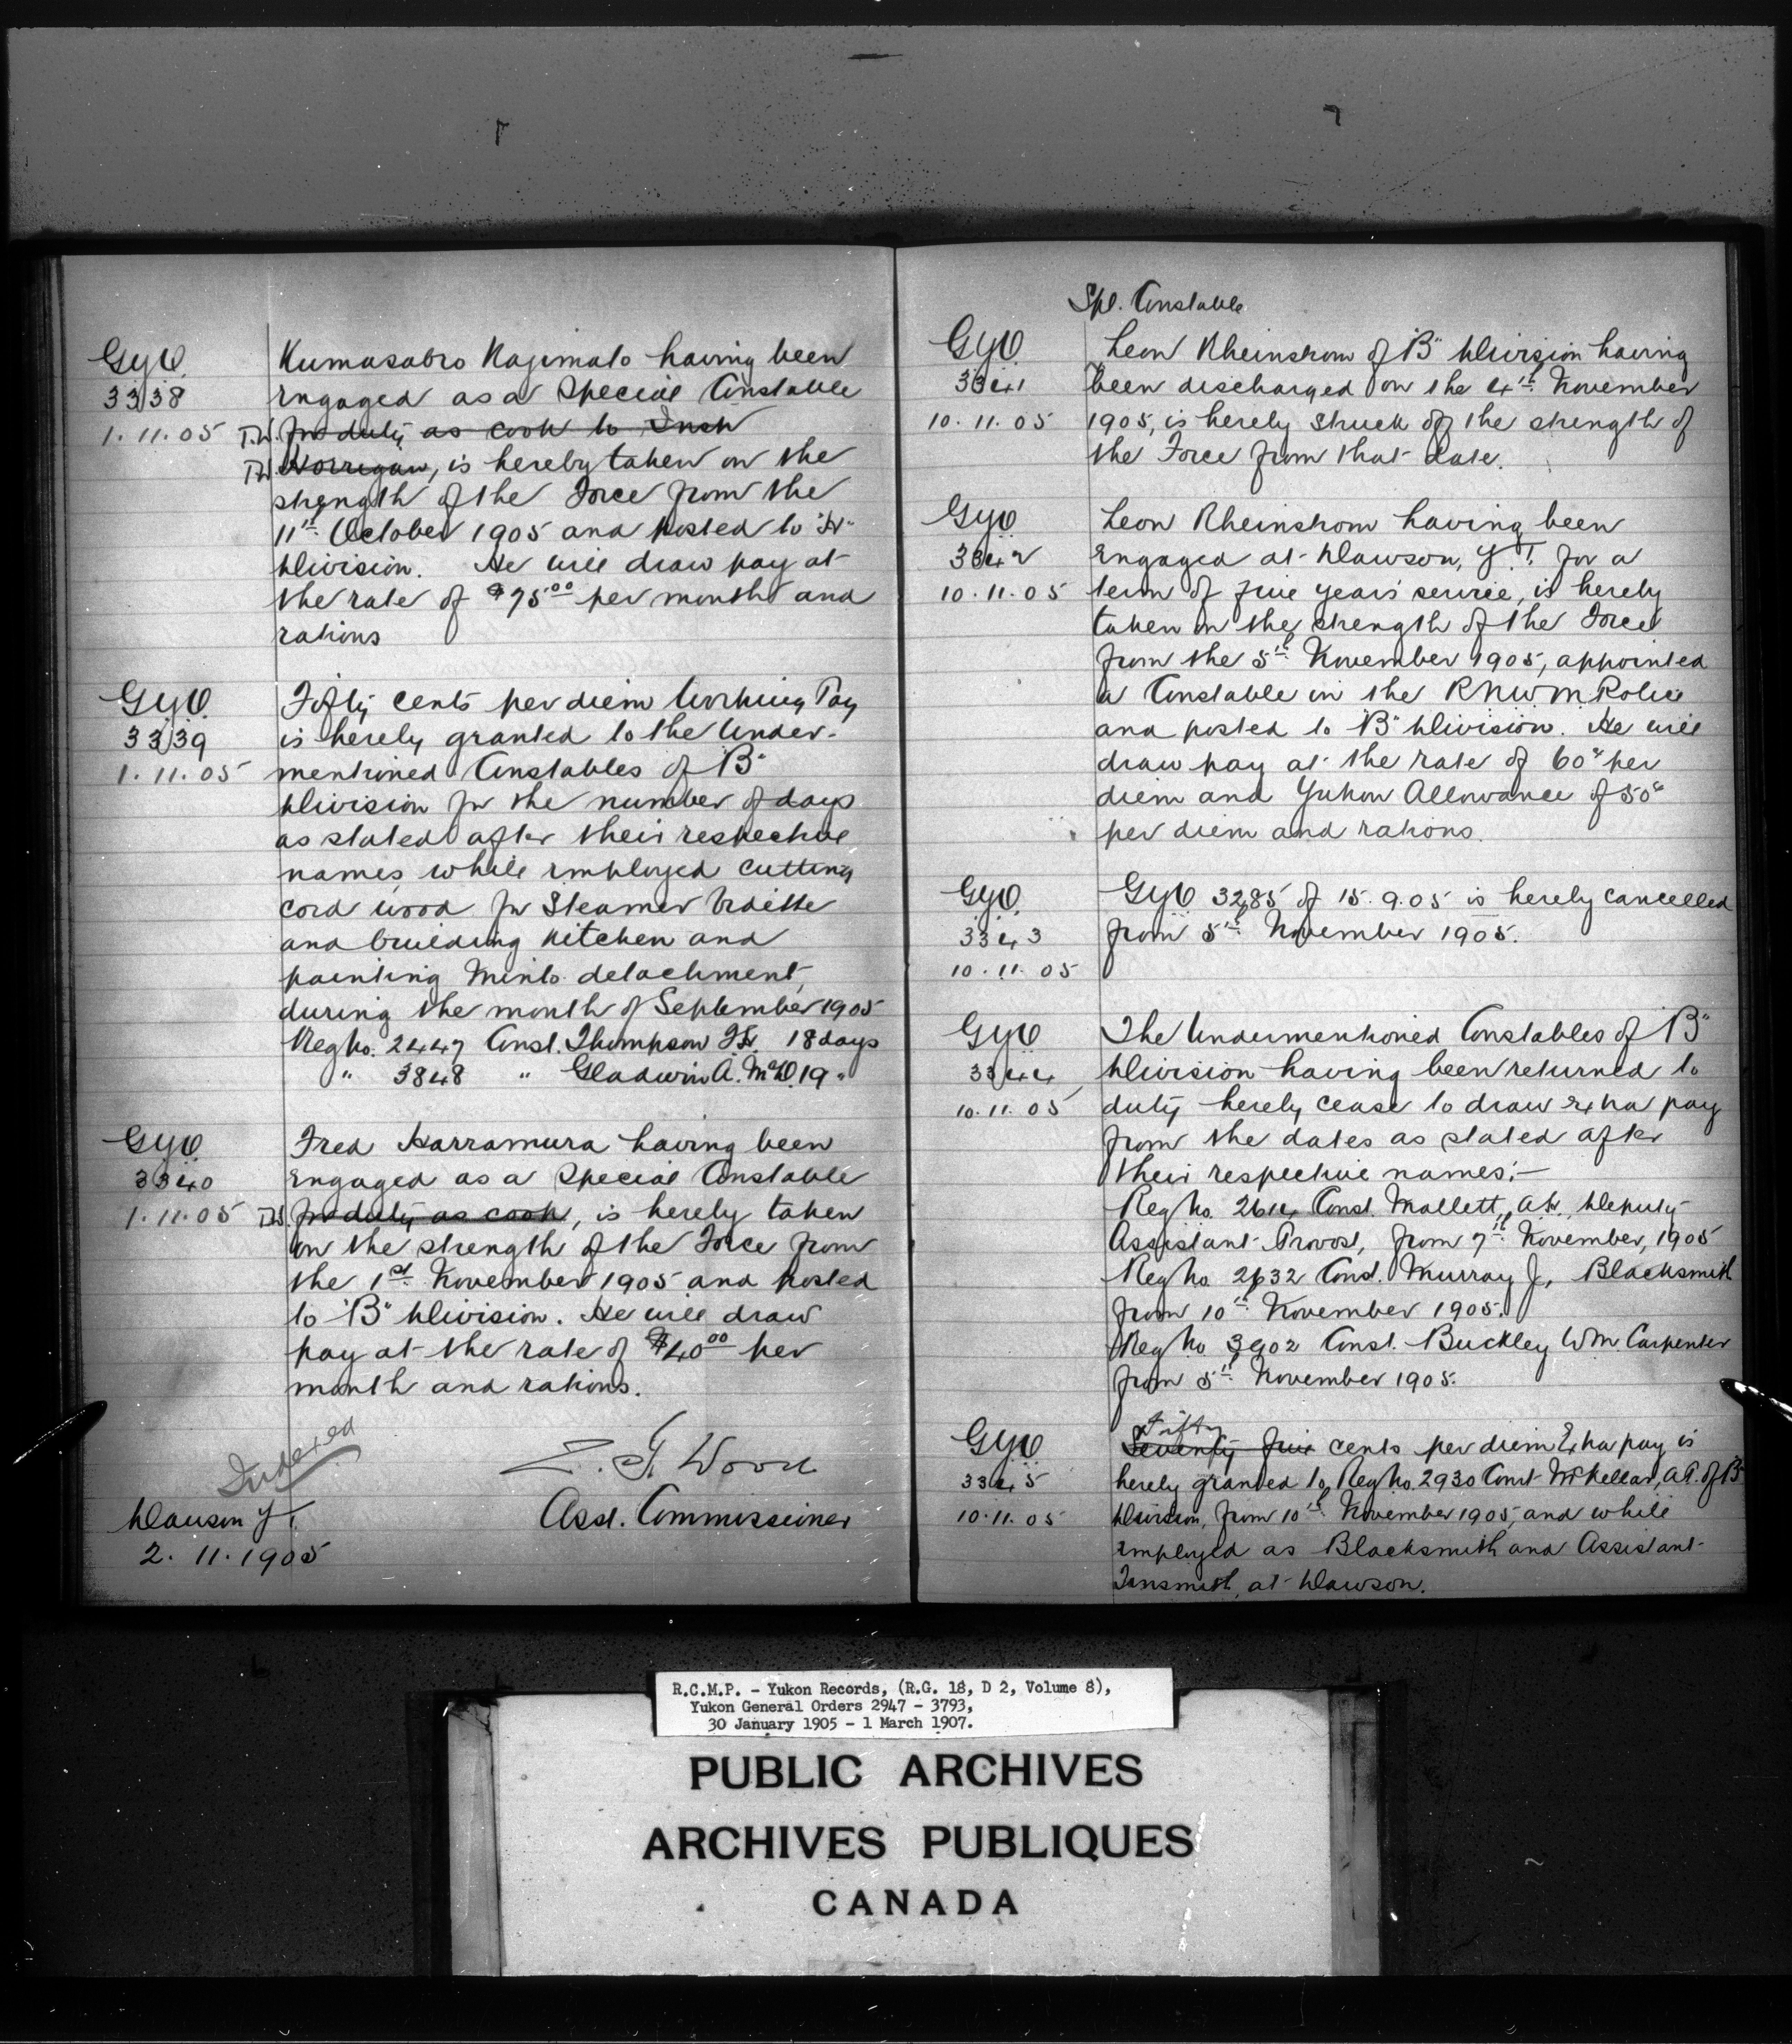 G.Y.O.
3338
1.11.05
Kumasabro Nagimato having been
engaged as a Special Constable
T.W. for duty as cook to Insp
T.W. Horrigan, is hereby taken on the
strength of the Force from the
11th October 1905 and posted to "H"
Division. He will draw pay at
the rate of $75.00 per month and
rations
G.Y.O.
3339
1.11.05
Fifty cents per diem Working Pay
is hereby granted to the Under-
mentioned Constables of "B"
Division for the number of days
as stated after their respective
names while employed cutting
cord wood for Steamer Vidette
and building kitchen and
painting Minto detachment,
during the month of September 1905
Reg No. 2447 Const. Thompson 18 days
" 3848 " Gladwin A. McD. 19 "
G.Y.O.
3340
1.11.05
Fred Harramura having been
engaged as a Special Constable
for duty as cook, is hereby taken
on the strength of the Force from
the 1st November 1905 and posted
to "B" Division. He will draw
pay at the rate of $40.00 per
month and rations.
Indexed
Dawson Y.T.
2.11.1905
Z. T. Wood
Asst. Commissioner
Spl. Constable
G.Y.O.
3341
10.11.05
Leon Rheinstrom of "B" Division having
been discharged on the 4th November
1905, is hereby struck off the strength of
the Force from that date.
G.Y.O.
3342
10.11.05
Leon Rheinstrom having been
engaged at Dawson, Y.T. for a
term of five years' service, is hereby
taken on the strength of the Force
from the 5th November 1905, appointed
a Constable in the R N W M Police
and posted to "B" Division. He will
draw pay at the rate of 60c per
diem and Yukon Allowance of 50c
per diem and rations.
G.Y.O.
3343
10.11.05
G.Y.O 3285 of 15.9.05 is hereby cancelled
from 5th November 1905.
G.Y.O.
3344
10.11.05
The Undermentioned Constables of "B"
Division having been returned to
duty hereby cease to draw extra pay
from the dates as stated after
their respective names:—
Reg No. 2614 Const. Mallett, A.H., Deputy
Assistant Provost, from 7th November, 1905
Reg No 2632 Const. Murray J, Blacksmith
from 10th November 1905.
Reg No 3902 Const. Buckley Wm. Carpenter
from 5th November 1905.
G.Y.O.
3345
10.11.05
Fifty
Seventy five cents per diem Extra pay is
hereby granted to Reg No. 2930 Const McKellar, A.P. of "B"
Division, from 10th November 1905, and while
employed as Blacksmith and Assistant
Tinsmith, at Dawson.
R.C.M.P. - Yukon Records, (R.G. 18, D 2, Volume 8),
Yukon General Orders 2947 - 3793,
30 January 1905 - 1 March 1907.
PUBLIC ARCHIVES
ARCHIVES PUBLIQUES
CANADA